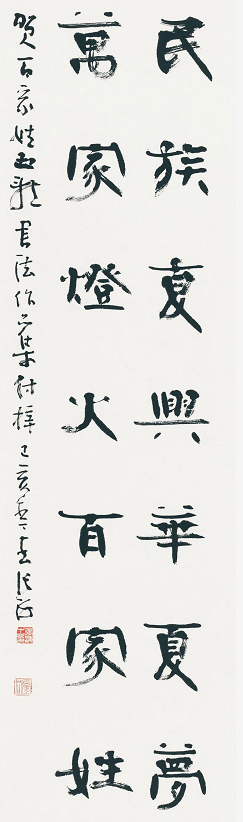 民族复興華夏夢
萬家燈火百家姓
贺百家姓书法作品集付梓己亥